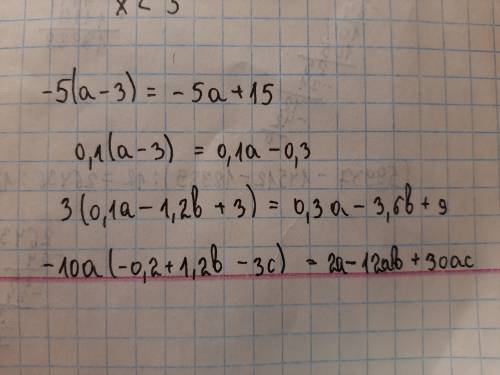 x < 3
-5(a-3) = -5a+15
0,1(a-3) = 0,1a-0,3
3(0,1a-1,2b+3) = 0,3a-3,6b+9
-10a(-0,2+1,2b-3c) = 2a-12ab+30ac